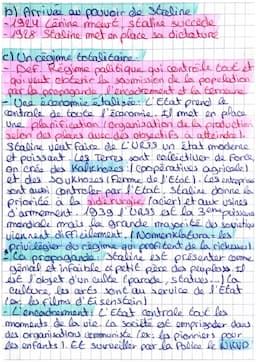 b) Arrivée au pouvoir de Staline
- 1924 Lénine meurt, Staline succède
- 1928 Staline met en place sa dictature
c) Un régime totalitaire
- Def: Régime politique qui contrôle tout et
qui veut obtenir la soumission de la population
par la propagande, l'encadrement et la terreur.
- Une économie étatisée: L'Etat prend le
contrôle de toute l'économie. Il met en place
une planification (organisation de la production
selon des plans avec des objectifs à atteindre).
Staline veut faire de L'URSS un état moderne
et puissant. Les Terres sont collectiver de Force,
on crée des Kolkhozes (coopératives agricoles)
et des Sovkhozes (Ferme de l'Etat). Les entreprises
sont aussi contrôler par l'Etat. Staline donne la
priorité à la sidérurgie (acier) et aux usines
d'armement. 1939 l'URSS est la 3ème puissance
mondiale mais la grande majorité du
viennent difficilement. (Nomenklatura: les
privilégier du régime qui profitent de la richesse)
- La propagande: Staline est présenter comme
génial et infaible "petit père des peuples". Il
est l'objet d'un culte (parade, statues...) La
culture, les arts sont au service de l'Etat
(ex: les films d'Eisenstein)
- L'encadrement: L'Etat contrôle tout les
moments de la vie. La société est emprisoder dans
des organisations communiste (ex: les pionniers pour
les enfants). Et surveiller par la Police le NKVD